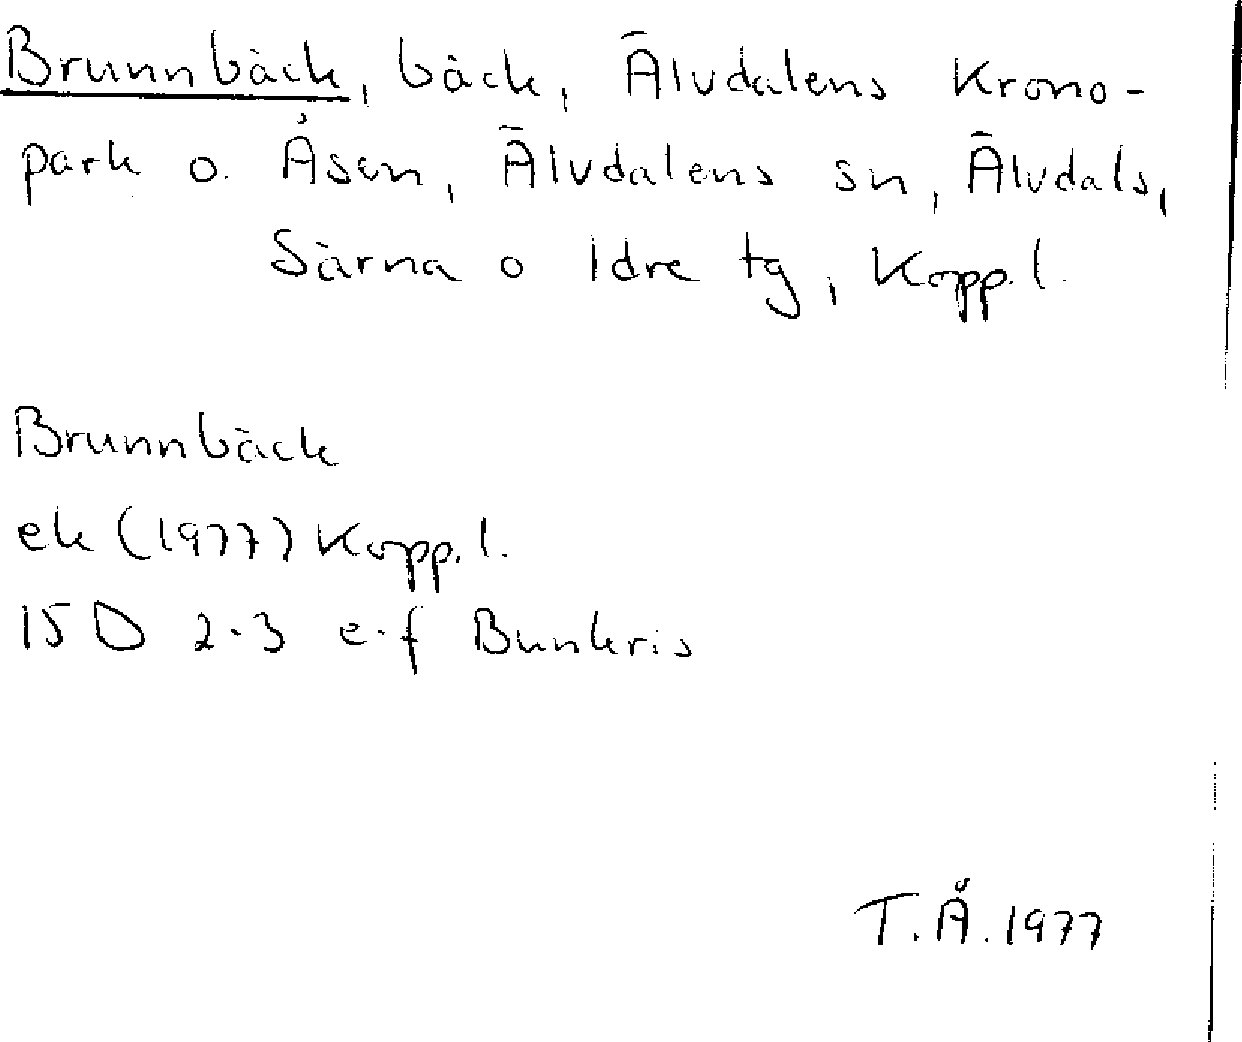 Brunnbäck, bäck, Älvdalens Krono-
park o. Åsen, Älvdalens sn, Älvdals,
Särna o Idre tg, Kopp.l.
Brunnbäck
ek (1977) Kopp.l.
15 D 2-3 e-f Bunkris
T.Å. 1977